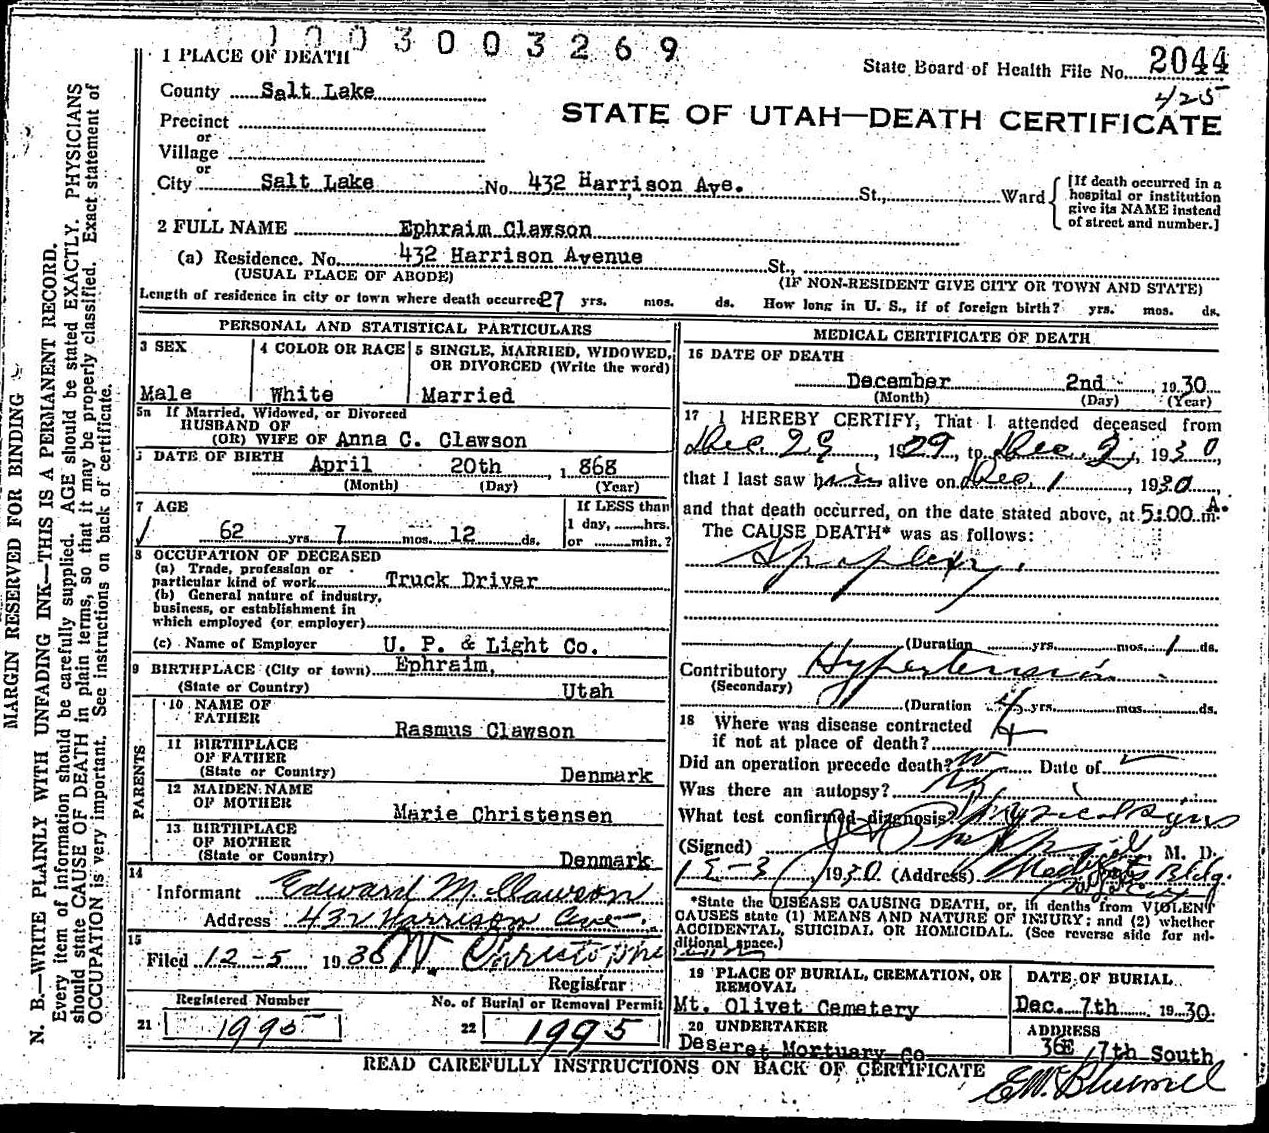 1003003269
1 PLACE OF DEATH
State Board of Health File No. 2044
425
County Salt Lake
STATE OF UTAH—DEATH CERTIFICATE
Precinct
or
Village
or
City Salt Lake No. 432 Harrison Ave. St., Ward
[If death occurred in a
hospital or institution
give its NAME instead
of street and number.]
2 FULL NAME Ephraim Clawson
(a) Residence. No. 432 Harrison Avenue St.,
(USUAL PLACE OF ABODE) (IF NON-RESIDENT GIVE CITY OR TOWN AND STATE)
Length of residence in city or town where death occurred 27 yrs. mos. ds. How long in U. S., if of foreign birth? yrs. mos. ds.
PERSONAL AND STATISTICAL PARTICULARS
3 SEX
Male
4 COLOR OR RACE
White
5 SINGLE, MARRIED, WIDOWED,
OR DIVORCED (Write the word)
Married
5a If Married, Widowed, or Divorced
HUSBAND OF
(OR) WIFE OF Anna C. Clawson
DATE OF BIRTH April 20th 1868
(Month) (Day) (Year)
7 AGE
62 yrs. 7 mos. 12 ds.
If LESS than
1 day, hrs.
or min.?
8 OCCUPATION OF DECEASED
(a) Trade, profession or
particular kind of work Truck Driver
(b) General nature of industry,
business, or establishment in
which employed (or employer)
(c) Name of Employer U. P. & Light Co.
9 BIRTHPLACE (City or town) Ephraim,
(State or Country) Utah
PARENTS
10 NAME OF
FATHER Rasmus Clawson
11 BIRTHPLACE
OF FATHER
(State or Country) Denmark
12 MAIDEN NAME
OF MOTHER Marie Christensen
13 BIRTHPLACE
OF MOTHER
(State or Country) Denmark
14
Informant Edward M. Clawson
Address 432 Harrison Ave.
15
Filed 12-5 1930
Registrar
Registered Number
21 1995
No. of Burial or Removal Permit
22 1995
MEDICAL CERTIFICATE OF DEATH
16 DATE OF DEATH
December 2nd 1930
(Month) (Day) (Year)
17 I HEREBY CERTIFY, That I attended deceased from
Dec. 29, 1929, to Dec. 2, 1930,
that I last saw him alive on Dec. 1, 1930,
and that death occurred, on the date stated above, at 5:00 A. m.
The CAUSE DEATH* was as follows:
Apoplexy.
(Duration yrs. mos. 1 ds.
Contributory Hypertension
(Secondary)
(Duration 4 yrs. mos. ds.
18 Where was disease contracted
if not at place of death?
Did an operation precede death? no Date of
Was there an autopsy? no
What test confirmed diagnosis? Phys. Signs
(Signed) M. D.
12-3 1930 (Address) Medical Arts Bldg.
*State the DISEASE CAUSING DEATH, or, in deaths from VIOLENT
CAUSES state (1) MEANS AND NATURE OF INJURY; and (2) whether
ACCIDENTAL, SUICIDAL OR HOMICIDAL. (See reverse side for ad-
ditional space.)
19 PLACE OF BURIAL, CREMATION, OR
REMOVAL
Mt. Olivet Cemetery
DATE OF BURIAL
Dec. 7th 1930.
20 UNDERTAKER
Deseret Mortuary Co
ADDRESS
36E 7th South
READ CAREFULLY INSTRUCTIONS ON BACK OF CERTIFICATE
MARGIN RESERVED FOR BINDING
N. B.—WRITE PLAINLY WITH UNFADING INK—THIS IS A PERMANENT RECORD.
Every item of information should be carefully supplied. AGE should be stated EXACTLY. PHYSICIANS
should state CAUSE OF DEATH in plain terms, so that it may be properly classified. Exact statement of
OCCUPATION is very important. See instructions on back of certificate.